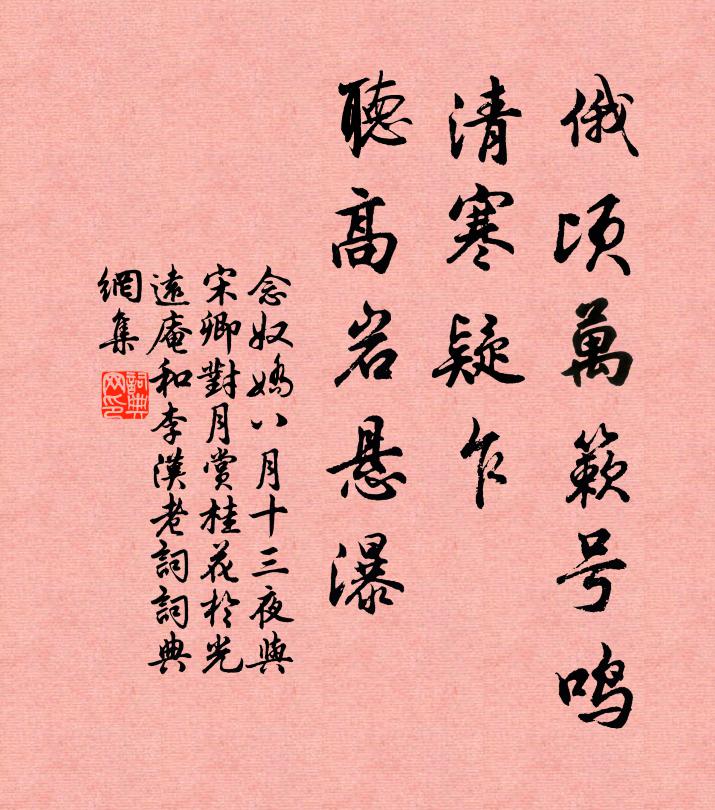 俄頃萬籟号鸣
清寒疑乍
聽高岩悬瀑
念奴嬌八月十三夜與
宋卿對月賞桂花於光
遠庵和李漢老詞詞典
網集
詞典网印